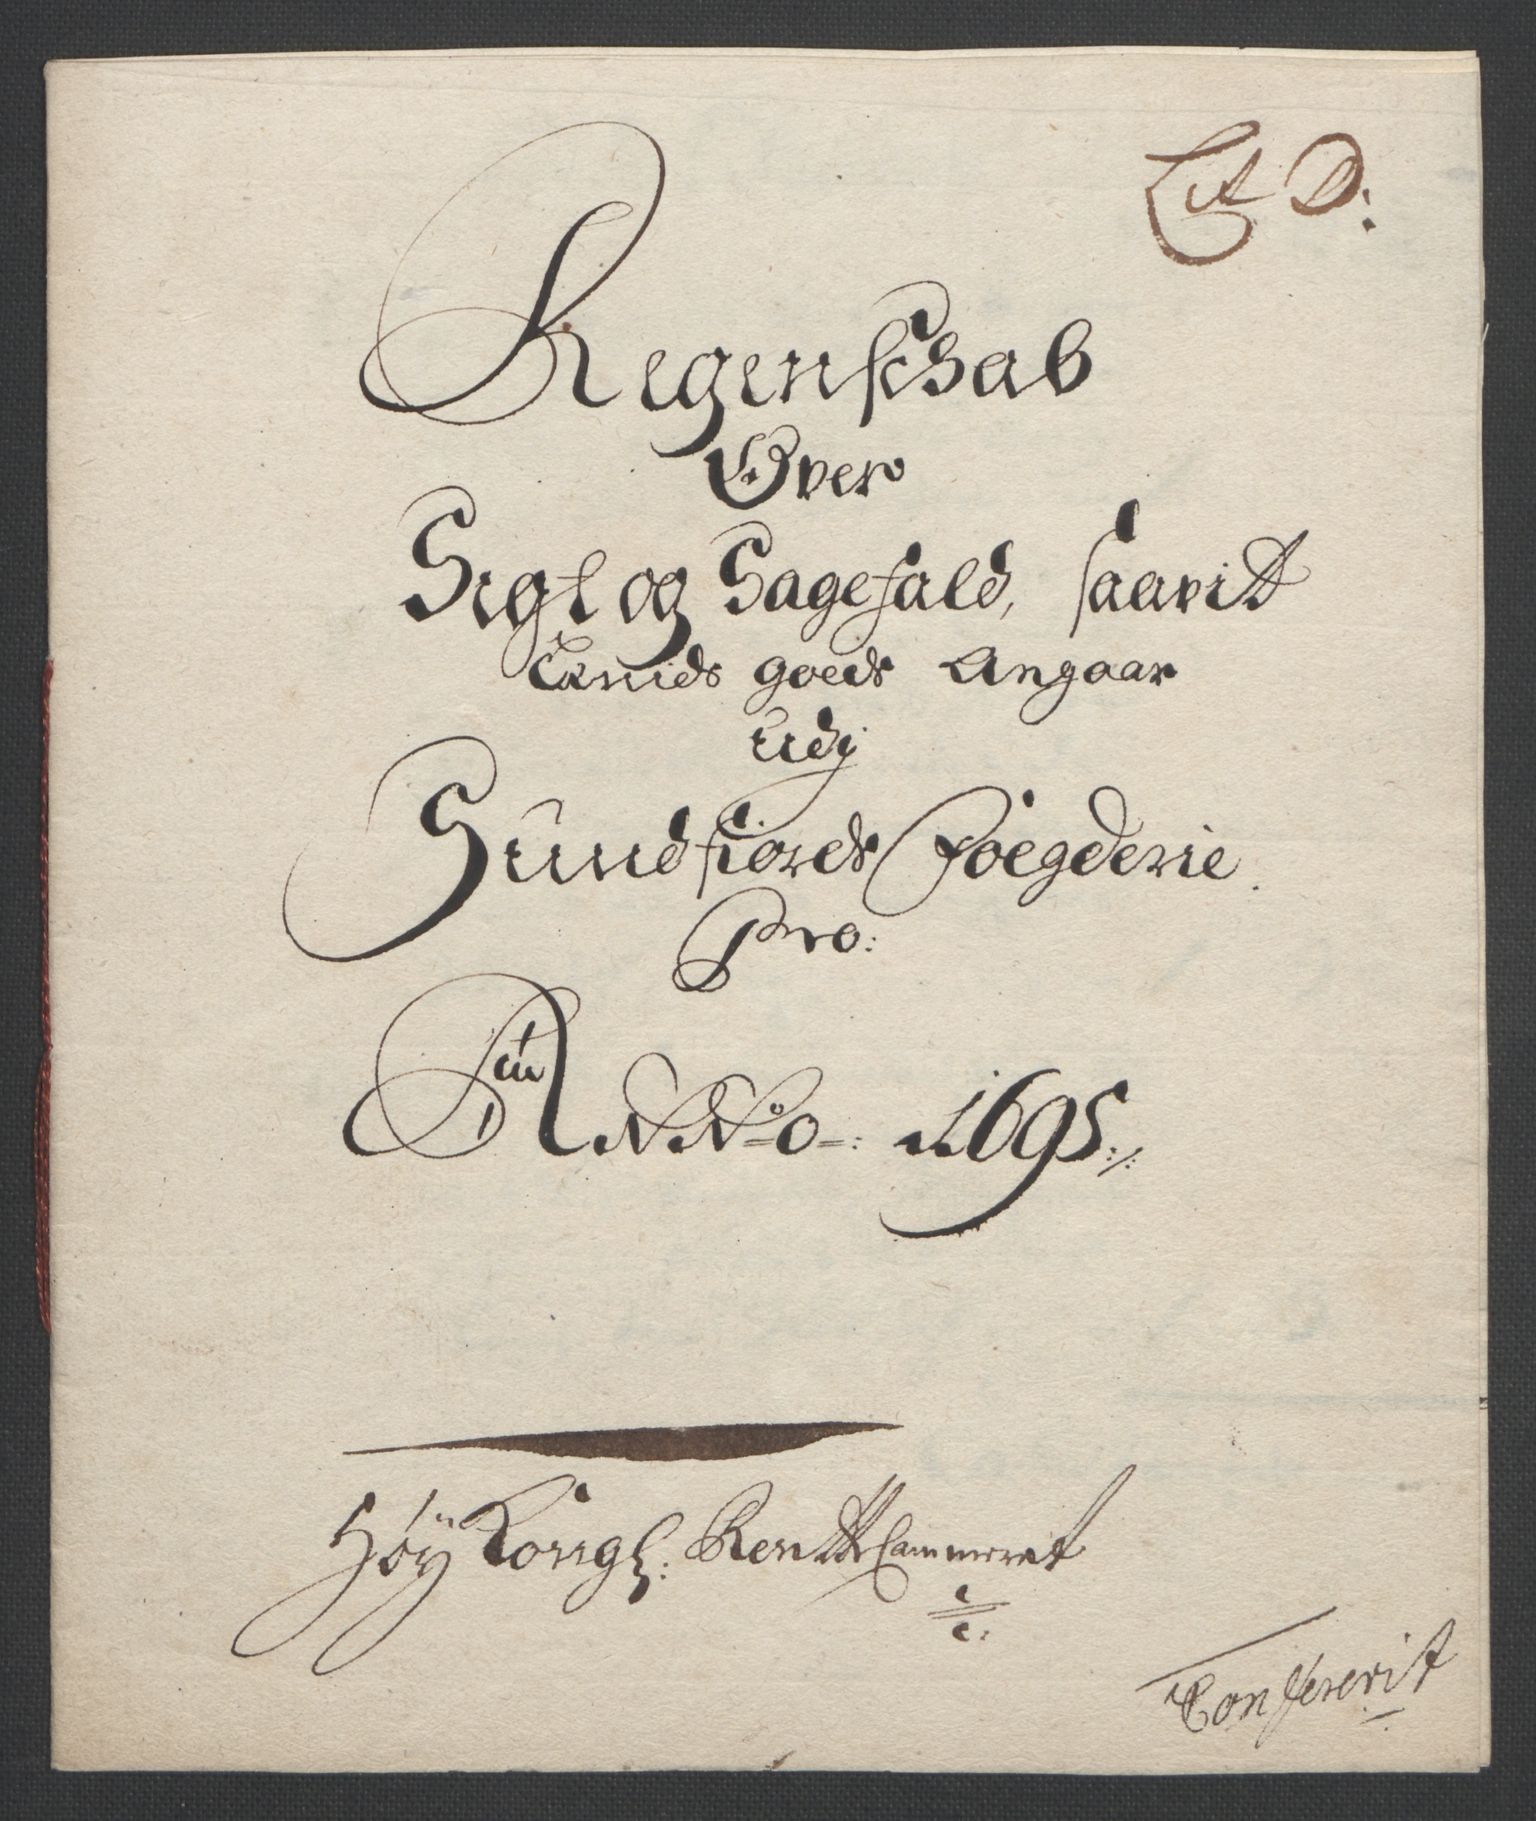 Lit D:
Regenschab
Over
Sigt og Sagefald, saavit
goeds Angaar
udj
Sundfiords Foegderie.
Pro:
ANNo: 1695
Höy Kongl: RenttCammeret
Confererit